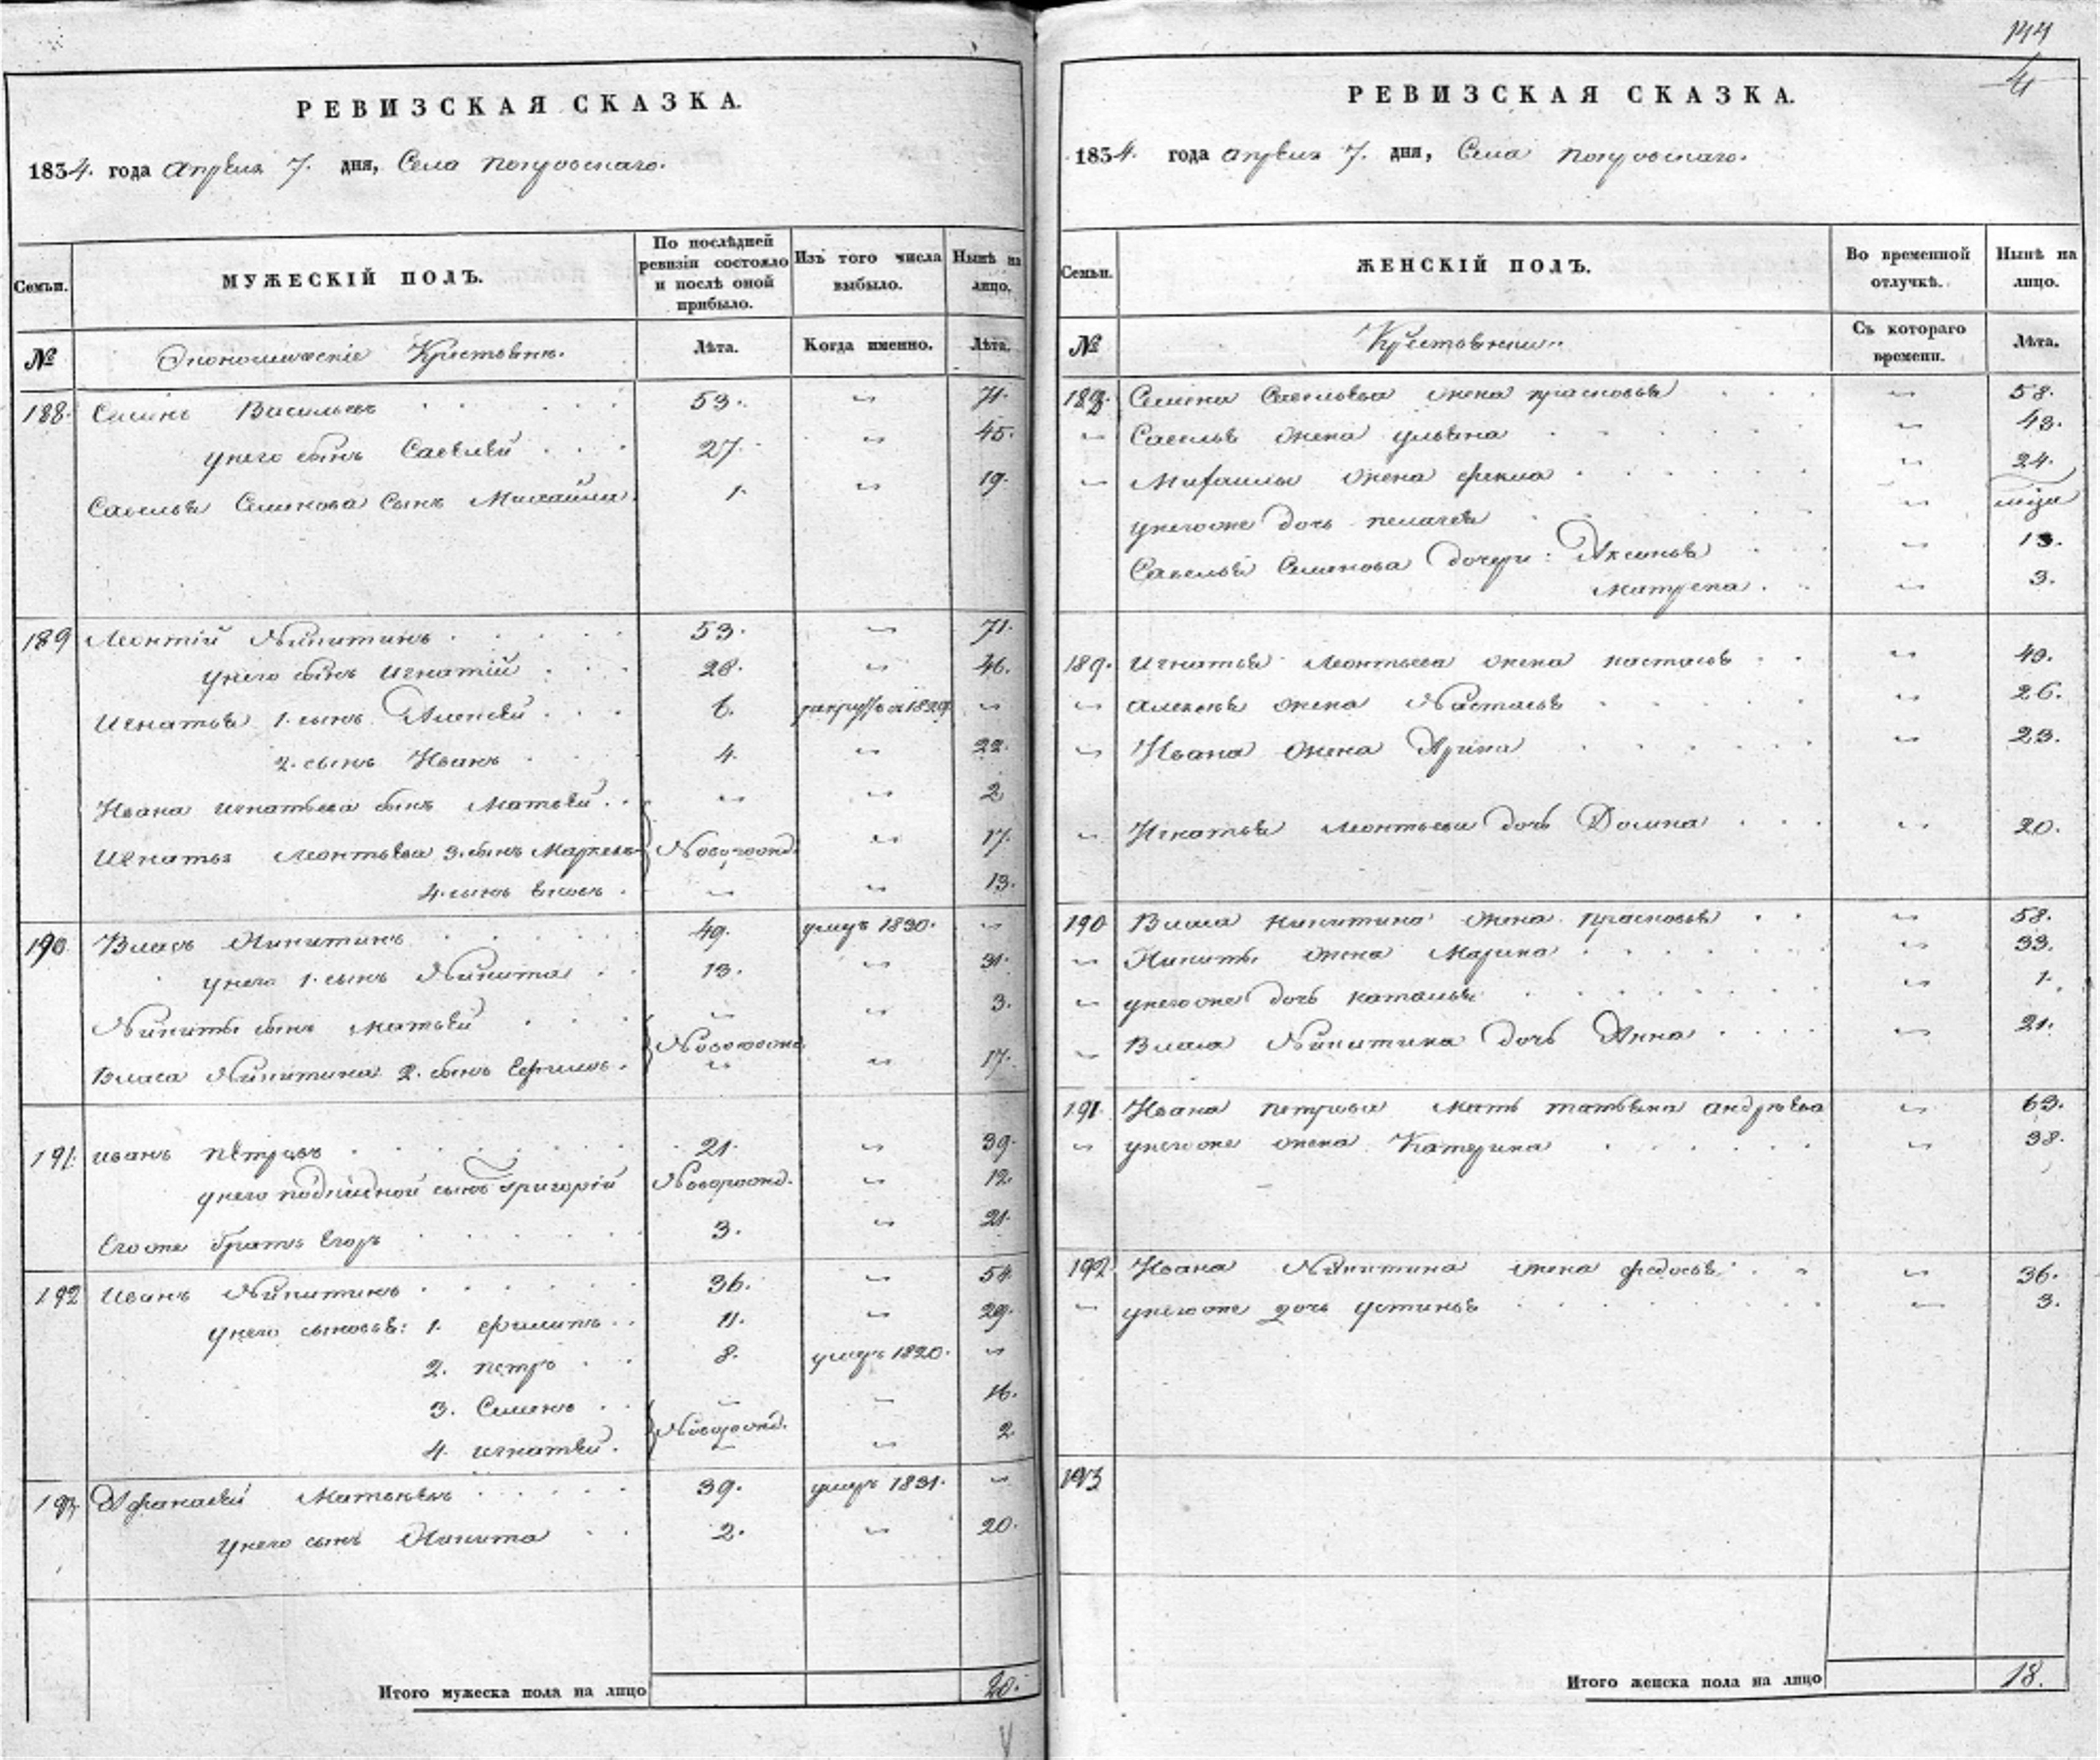 144
4
РЕВИЗСКАЯ СКАЗКА.
1834. года Апреля 7. дня, Села
Семьи.
МУЖЕСКІЙ ПОЛЪ.
По послѣдней ревизіи состояло и послѣ оной прибыло.
Изъ того числа выбыло.
Нынѣ на лицо.
№
Экономическіе Крестьяне.
Лѣта.
Когда именно.
Лѣта.
188. Семенъ Васильевъ 53. 71.
у него сынъ Савелей 27. 45.
Савелья Семенова сынъ Михайла. 1. 19.
189 Леонтій Никитинъ 53. 71.
у него сынъ Игнатій 28. 46.
Игнатья 1. сынъ Алексей 6. 1829
2. сынъ Иванъ 4. 22.
Ивана Игнатьева сынъ Матвей. 2
Игнатья Леонтьева 3. сынъ Маркелъ Новорожд. 17.
4. сынъ 13.
190 Власъ Никитинъ 49. умеръ 1830.
у него 1. сынъ Никита 13. 31.
Никиты сынъ Матвей 3.
Новорожд.
Власа Никитина 2. сынъ Ефимъ. 17.
191. Иванъ Петровъ 21. 39.
у него сынъ Григорій Новорожд. 12.
Его же братъ Егоръ 3. 21.
192 Иванъ Никитинъ 36. 54.
у него сыновья: 1. Филипъ 11. 29.
2. Петръ 8. умеръ 1820.
3. Семенъ 16.
Новорожд.
4. Игнатей. 2
193 Афанасей Матвеевъ 39. умеръ 1831.
у него сынъ Никита 2. 20.
Итого мужеска пола на лицо 20.
РЕВИЗСКАЯ СКАЗКА.
1834. года Апреля 7. дня, Села
Семьи.
ЖЕНСКІЙ ПОЛЪ.
Во временной отлучкѣ.
Нынѣ на лицо.
№
Съ котораго времени.
Лѣта.
188. Семена жена Прасковья 58.
Савелья жена Ульяна 43.
Михайлы жена Фекла 24.
у него же дочь Пелагея
Савелья Семенова дочери: Аксинья 13.
Матрена. 3.
189. Игнатья Леонтьева жена Настасья 49.
Алексея жена Настасья 26.
Ивана жена Арина 23.
Игнатья Леонтьева дочь Домна 20.
190 Власа Никитина жена Прасковья 58.
Никиты жена Марина 33.
у него же дочь Наталья 1.
Власа Никитина дочь Анна 21.
191. Ивана Петрова мать Татьяна Андреева 63.
у него же жена Катерина 38.
192 Ивана Никитина жена Федосья 36.
у него же дочь Устинья 3.
193
Итого женска пола на лицо 18.